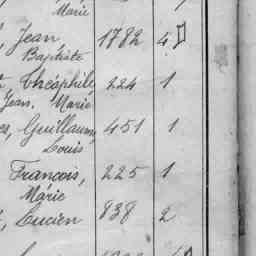 Marie
Jean, 1782 4
Baptiste
Théophile, 224 1
Jean. Marie
Guillaume, 451 1
Louis
François, 225 1
Márie
Lucien 838 2